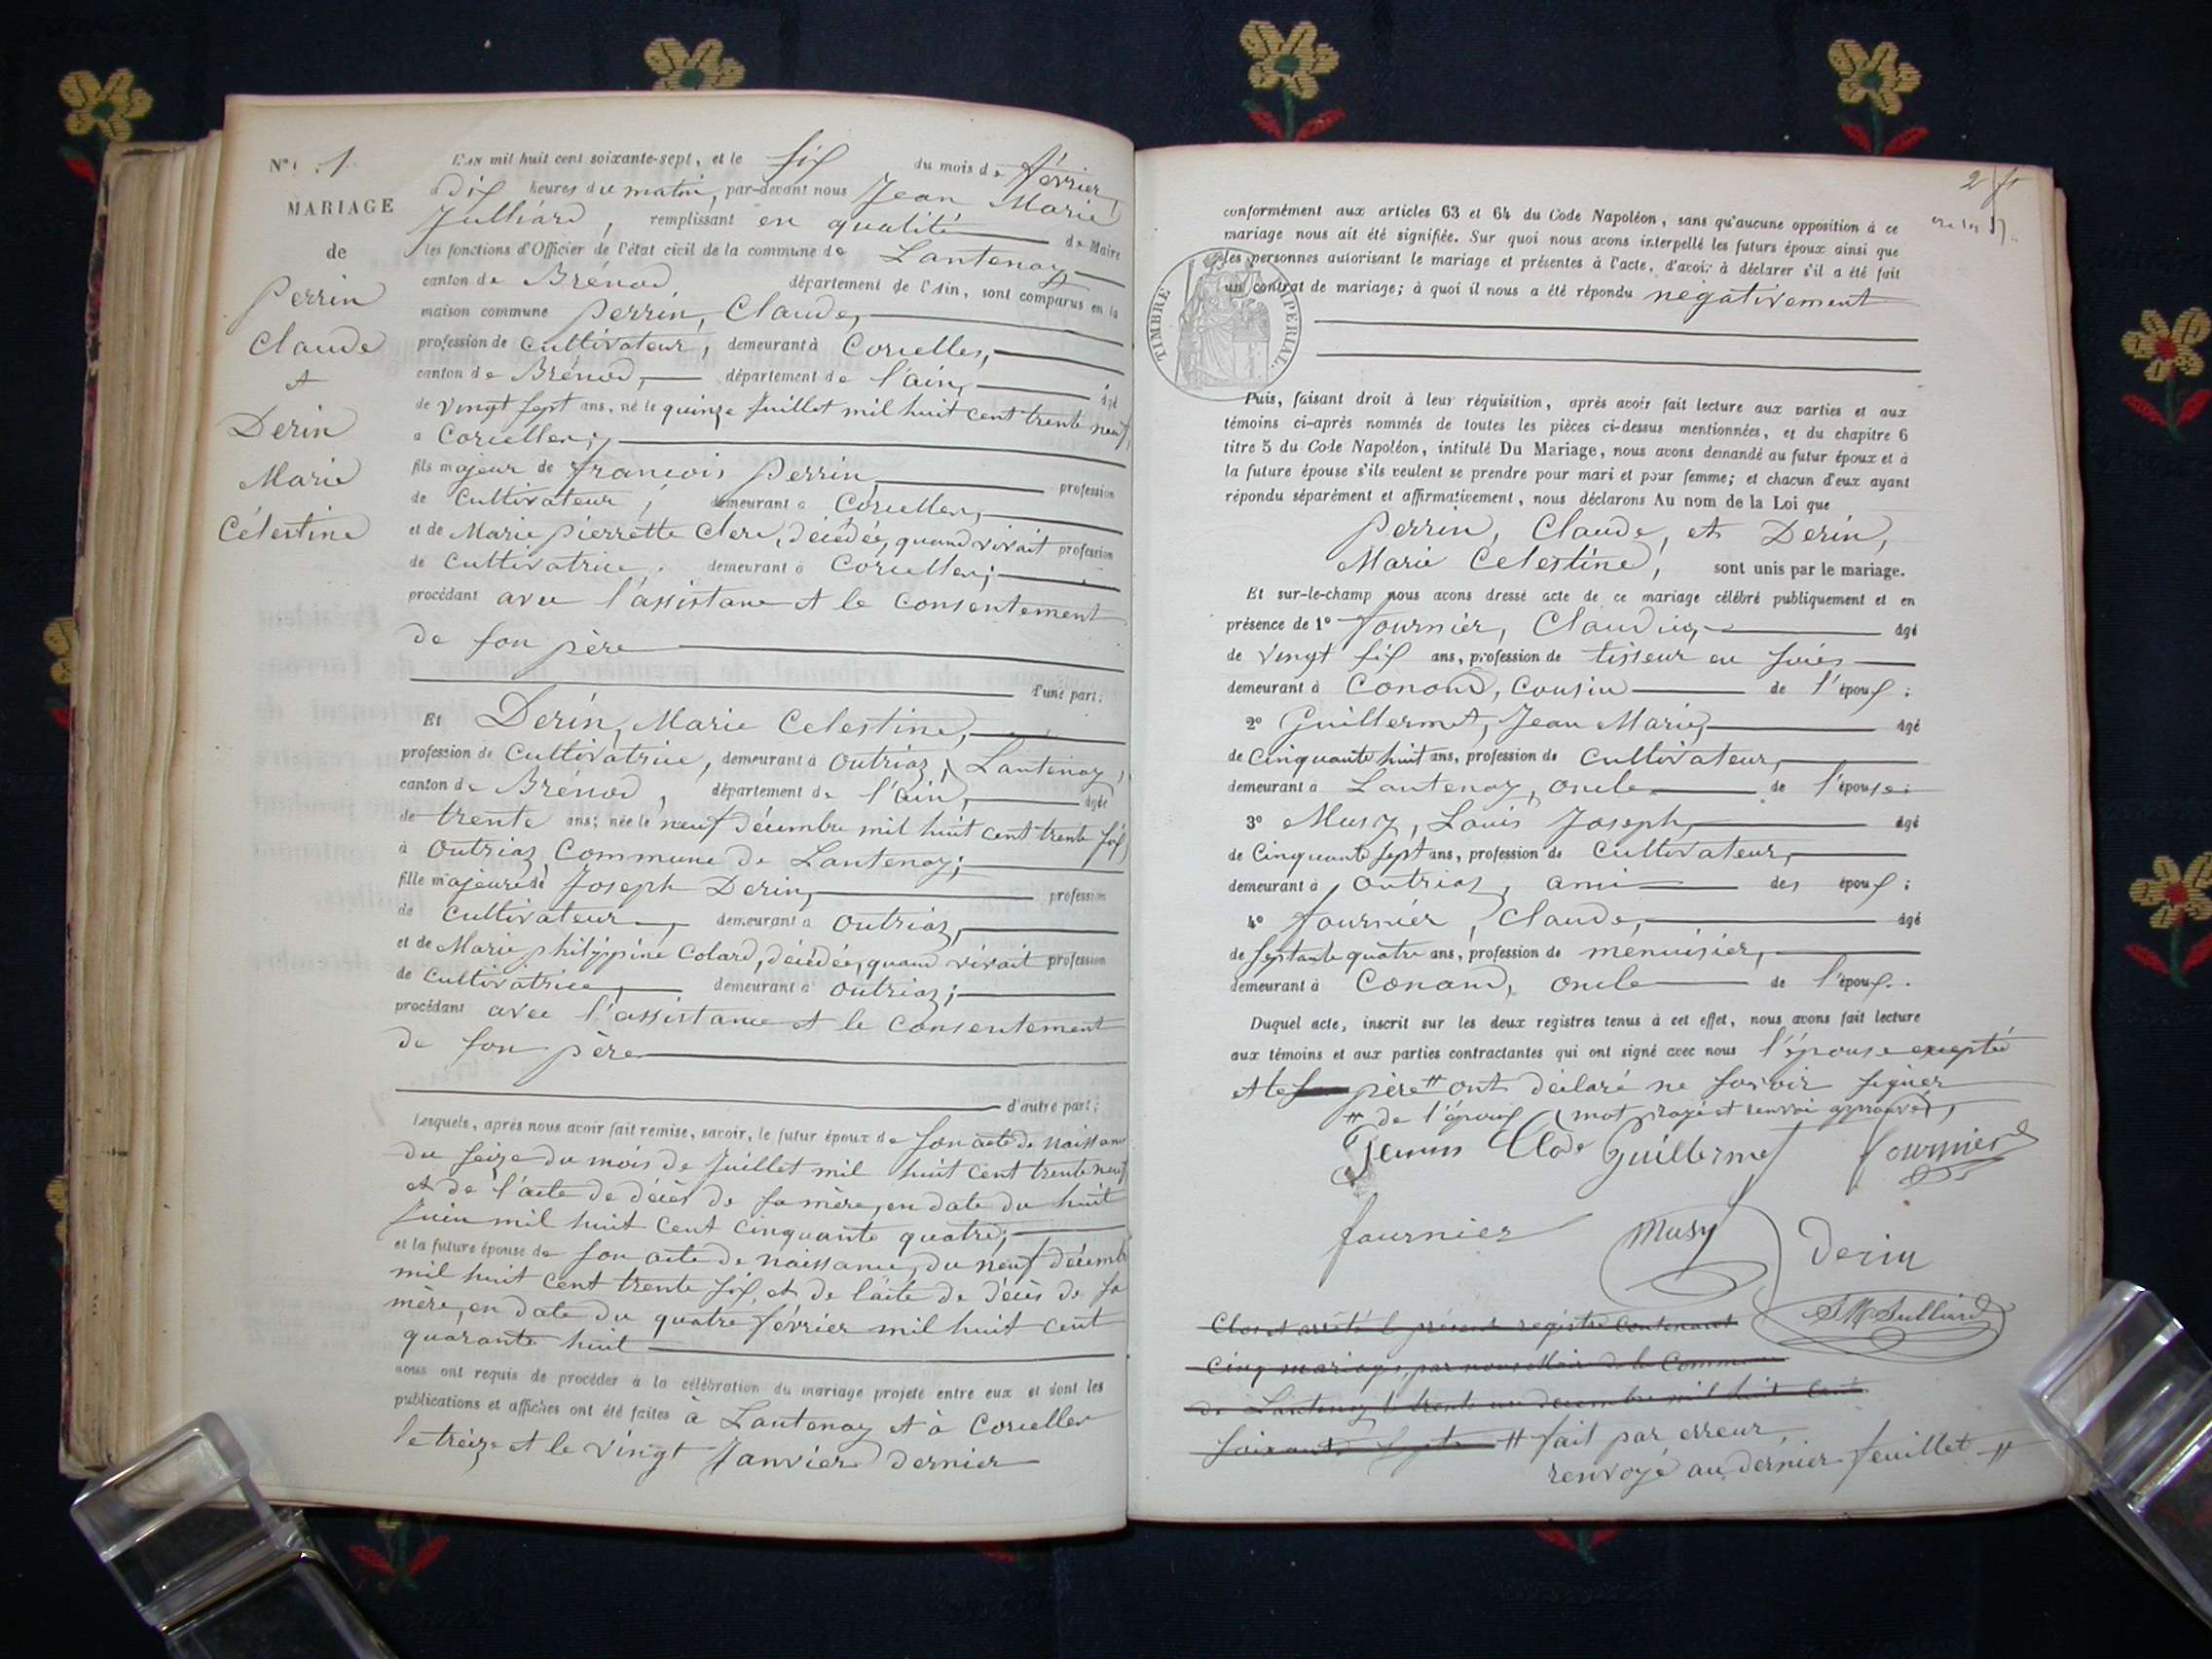 N° 1
MARIAGE
de
Perrin
Claude
et
Derin
Marie
Célestine
L'an mil huit cent soixante-sept, et le six du mois de février,
à dix heures du matin, par-devant nous Jean Marie
Julliard, remplissant en qualité de Maire
les fonctions d'Officier de l'état civil de la commune de Lantenay,
canton de Brénod département de l'Ain, sont comparus en la
maison commune Perrin, Claude,
profession de cultivateur, demeurant à Corcelles,
canton de Brénod, département de l'ain, âgé
de vingt sept ans, né le quinze Juillet mil huit cent trente neuf,
à Corcelles;
fils majeur de françois Perrin, profession
de cultivateur, demeurant à Corcelles,
et de Marie pierrette Clerc, décédée, quand vivait profession
de cultivatrice, demeurant à Corcelles;
procédant avec l'assistance et le consentement
de son père
d'une part:
Et Derin, Marie Celestine,
profession de cultivatrice, demeurant à Outriaz, Lantenay,
canton de Brénod, département de l'ain, âgée
de trente ans; née le neuf décembre mil huit cent trente six,
à Outriaz, Commune de Lantenay;
fille majeure de Joseph Derin, profession
de cultivateur, demeurant à Outriaz,
et de Marie philippine Colard, décédée, quand vivait profession
de cultivatrice, demeurant à Outriaz;
procédant avec l'assistance et le consentement
de son père
d'autre part;
Lesquels, après nous avoir fait remise, savoir, le futur époux de son acte de naissance
du seize du mois de Juillet mil huit cent trente neuf
et de l'acte de décès de sa mère, en date du huit
Juin mil huit cent cinquante quatre;
et la future épouse de son acte de naissance, du neuf décembre
mil huit cent trente six, et de l'acte de décès de sa
mère, en date du quatre février mil huit cent
quarante huit
nous ont requis de procéder à la célébration du mariage projeté entre eux et dont les
publications et affiches ont été faites à Lantenay et à Corcelles
le treize et le vingt Janvier dernier
2
conformément aux articles 63 et 64 du Code Napoléon, sans qu'aucune opposition à ce
mariage nous ait été signifiée. Sur quoi nous avons interpellé les futurs époux ainsi que
les personnes autorisant le mariage et présentes à l'acte, d'avoir à déclarer s'il a été fait
un contrat de mariage; à quoi il nous a été répondu négativement
TIMBRE IMPERIAL.
Puis, faisant droit à leur réquisition, après avoir fait lecture aux parties et aux
témoins ci-après nommés de toutes les pièces ci-dessus mentionnées, et du chapitre 6
titre 5 du Code Napoléon, intitulé Du Mariage, nous avons demandé au futur époux et à
la future épouse s'ils veulent se prendre pour mari et pour femme; et chacun d'eux ayant
répondu séparément et affirmativement, nous déclarons Au nom de la Loi que
Perrin, Claude, et Derin,
Marie Celestine, sont unis par le mariage.
Et sur-le-champ nous avons dressé acte de ce mariage célébré publiquement et en
présence de 1° fournier, Claudius, âgé
de vingt six ans, profession de tisseur en soies
demeurant à Conand, cousin de l'époux;
2° Guillermet, Jean Marie, âgé
de Cinquante huit ans, profession de cultivateur,
demeurant à Lantenay, oncle de l'épouse;
3° Musy, Louis Joseph, âgé
de Cinquante sept ans, profession de cultivateur,
demeurant à Outriaz, ami des époux;
4° fournier, Claude, âgé
de septante quatre ans, profession de menuisier,
demeurant à Conand, oncle de l'époux.
Duquel acte, inscrit sur les deux registres tenus à cet effet, nous avons fait lecture
aux témoins et aux parties contractantes qui ont signé avec nous l'épouse exceptée
et le père # ont déclaré ne savoir signer
# de l'époux mot rayé et renvoi approuvés,
Perrin Clde Guillermet fournier
fournier Musy Derin
JM Julliard
Clos et arrêté le présent registre contenant
cinq mariages, par nous Maire de la Commune
de Lantenay le trente un decembre mil huit cent
soixante sept # fait par erreur,
renvoyé au dernier feuillet #